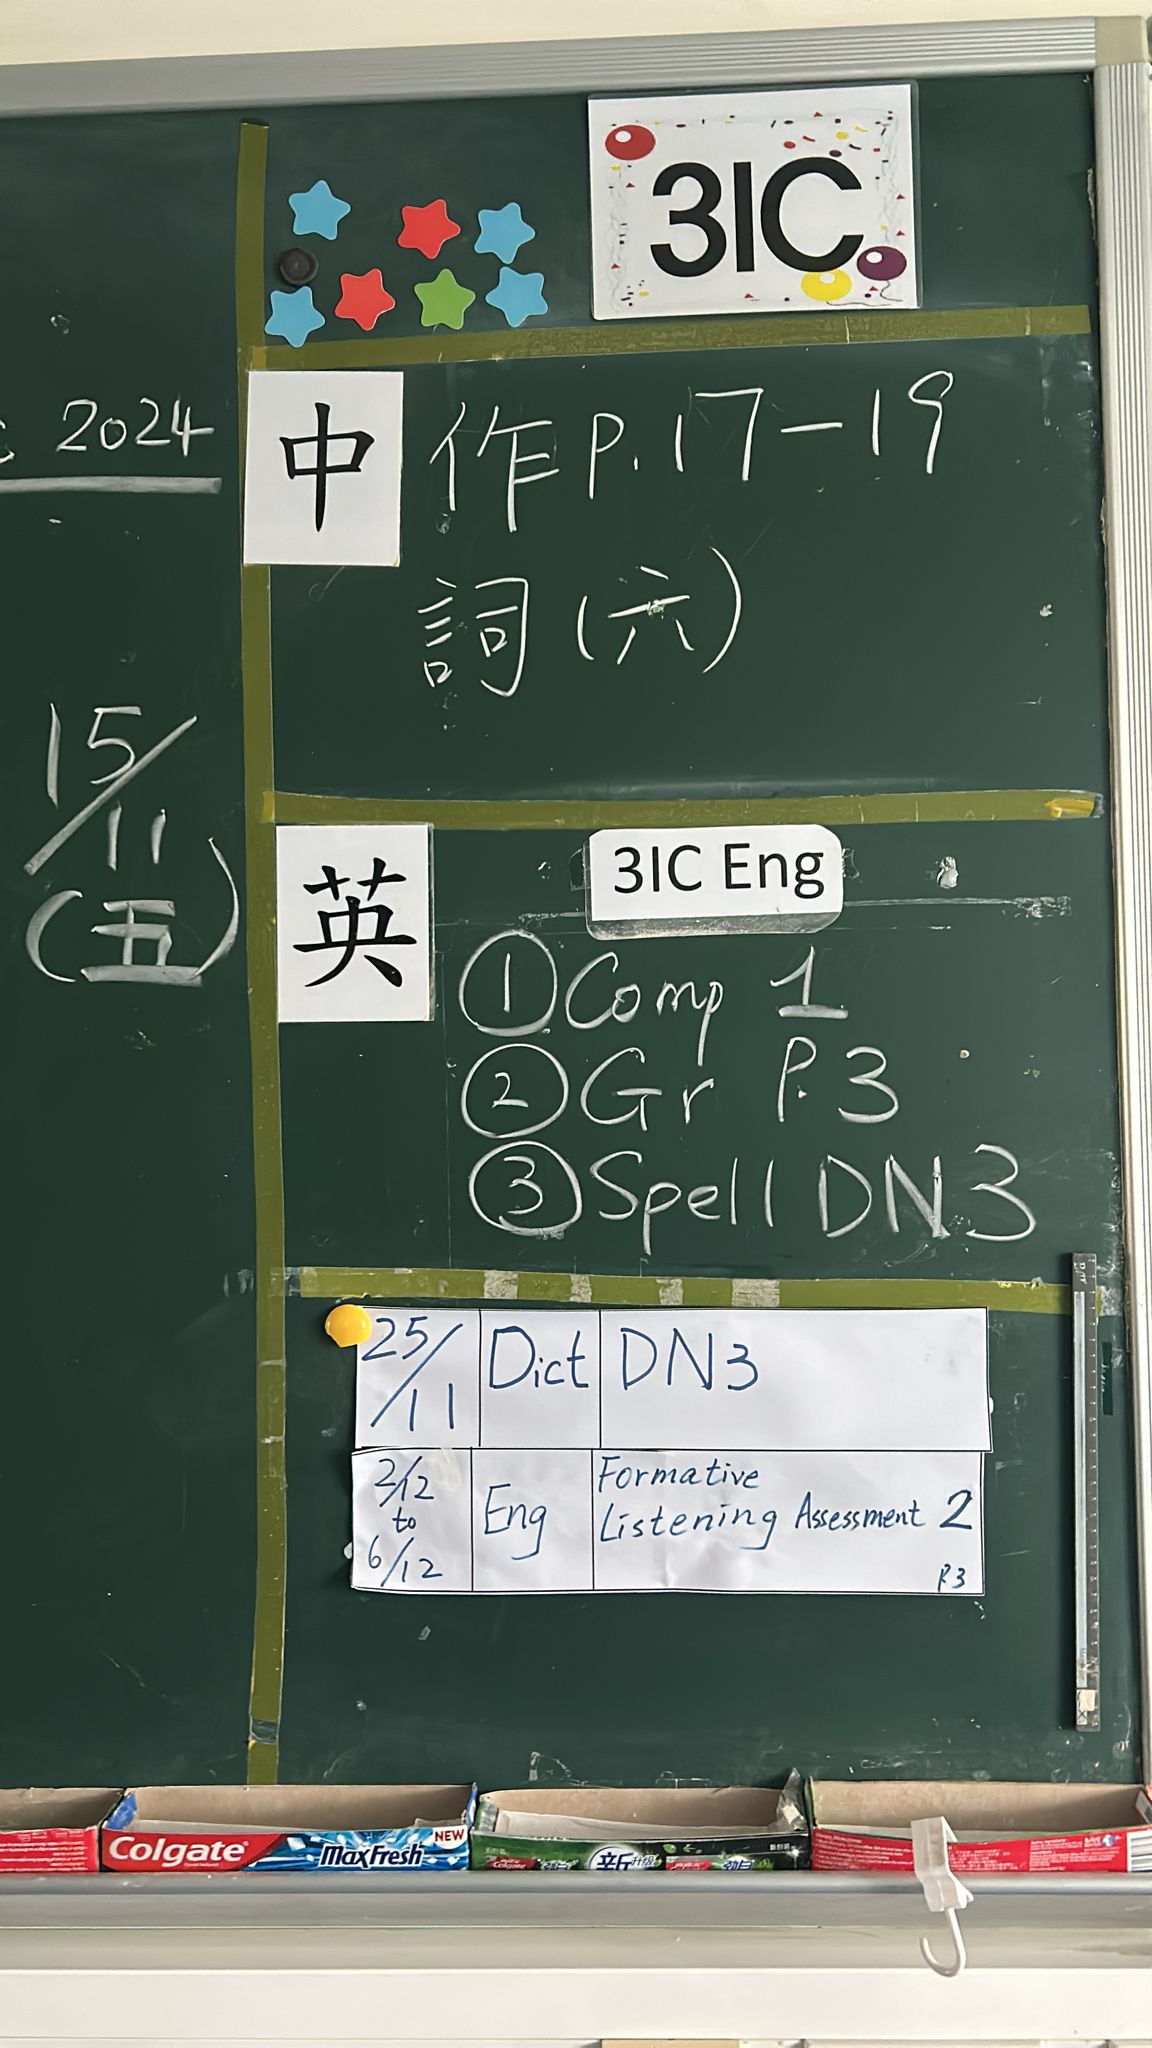 3IC
2024
中
作 P.17-19
詞(六)
15/11
(五)
英
3IC Eng
① Comp 1
② Gr P.3
③ Spell DN3
25/11 Dict DN3
2/12 to 6/12 Eng Formative Listening Assessment 2 P.3
Colgate MaxFresh NEW
Colgate 新升级